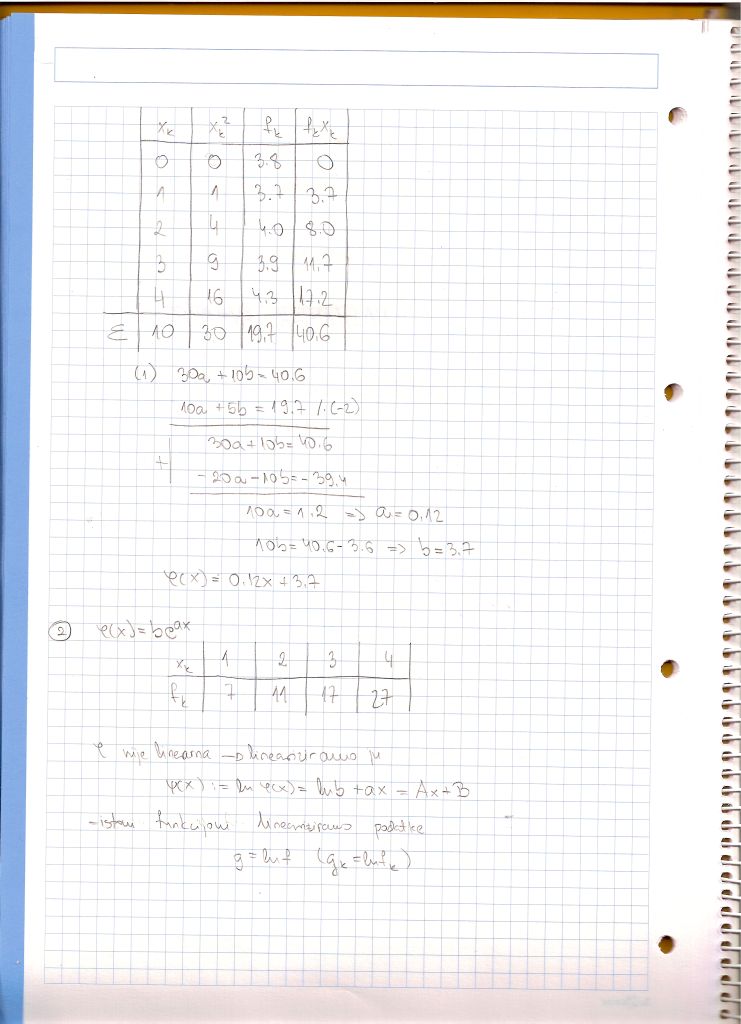 x_k x_k^2 f_k f_k x_k
0 0 3.8 0
1 1 3.7 3.7
2 4 4.0 8.0
3 9 3.9 11.7
4 16 4.3 17.2
Σ 10 30 19.7 40.6
(1) 30a + 10b = 40.6
10a + 5b = 19.7 /·(-2)
30a + 10b = 40.6
+
-20a - 10b = -39.4
10a = 1.2 => a = 0.12
10b = 40.6 - 3.6 => b = 3.7
φ(x) = 0.12x + 3.7
② φ(x) = be^{ax}
x_k 1 2 3 4
f_k 7 11 17 27
φ nije linearna → lineariziramo ju
ψ(x) := ln φ(x) = ln b + ax = Ax + B
- istom funkcijom lineariziramo podatke
g = ln f (g_k = ln f_k)